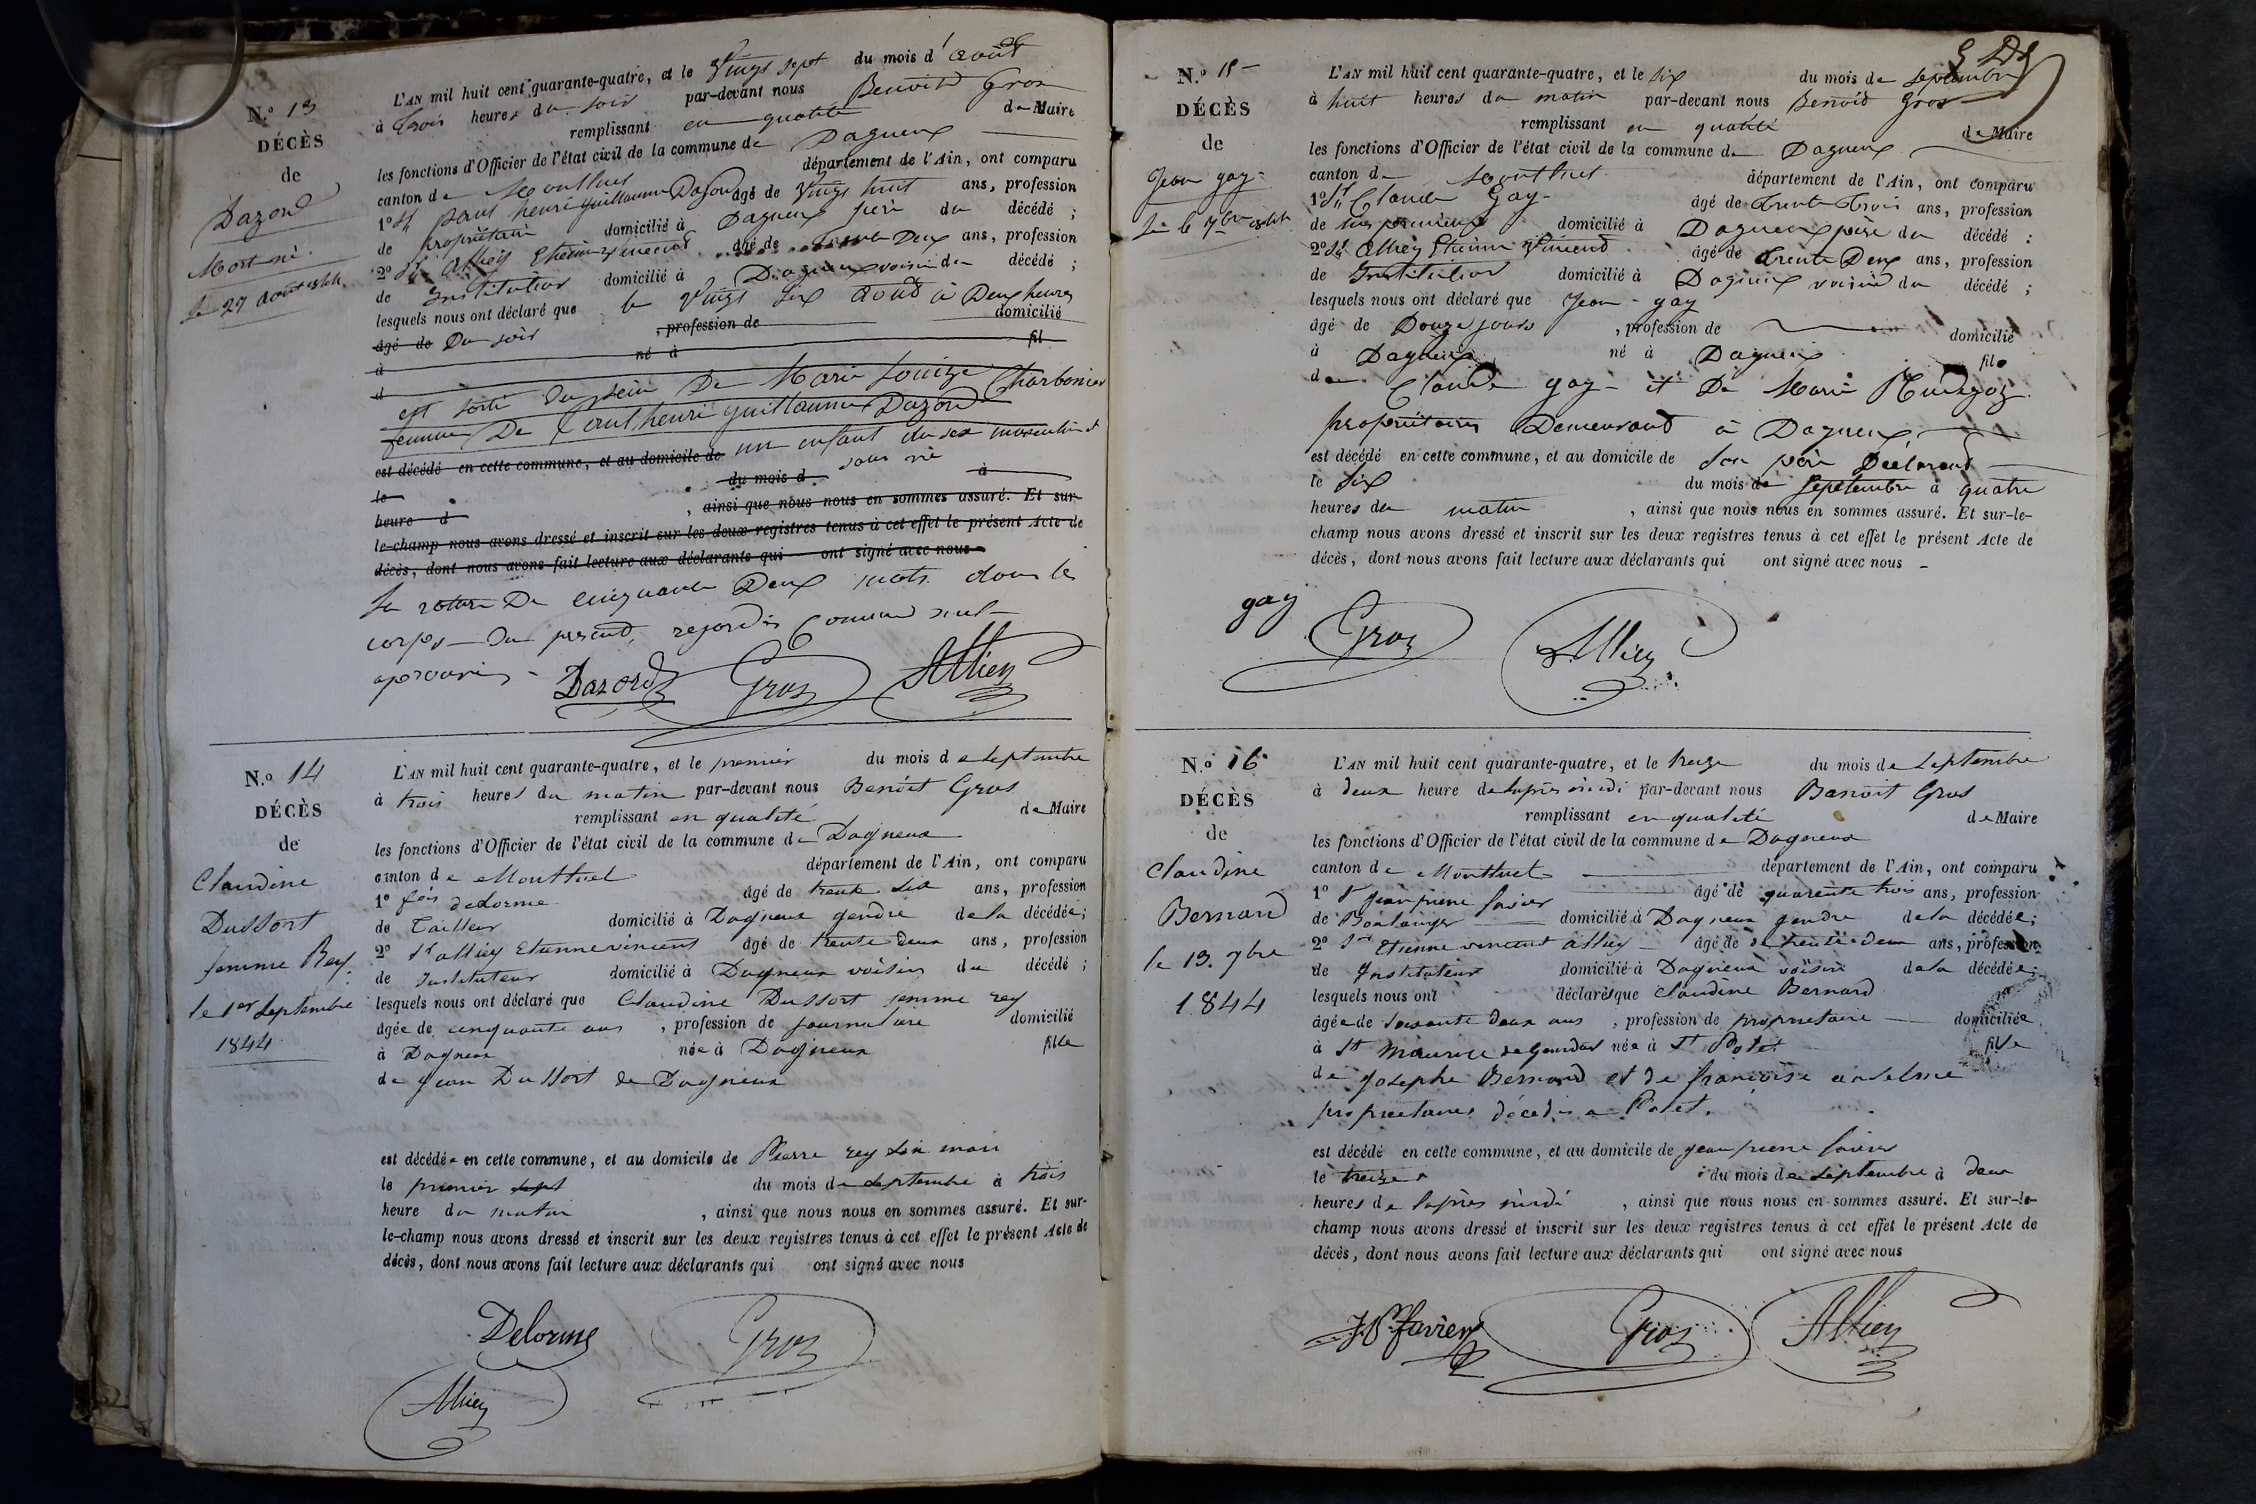 N.o 13
DÉCÈS
de
Dazord
Mort né.
le 27 août 1844
L'AN mil huit cent quarante-quatre, et le Vingt sept du mois d'août
à trois heures du soir par-devant nous Benoit Gros
remplissant en qualité de Maire
les fonctions d'Officier de l'état civil de la commune de Dagneux
canton de Montluel département de l'Ain, ont comparu
1o Sr paul henri guillaume Dazord âgé de Vingt huit ans, profession
de propriétaire domicilié à Dagneux père du décédé ;
2o Sr Alliey Etienne Vincent âgé de trente Deux ans, profession
de Instituteur domicilié à Dagneux voisin du décédé ;
lesquels nous ont déclaré que le Vingt Six août à Deux heures
âgé de Du soir , profession de domicilié
à né à fil
d est sorti du sein De Marie Louize Charbonier
femme De Paul henri guillaume Dazord
est décédé en cette commune, et au domicile de un enfant du sex masculin et
le du mois d sous vie à
heure d , ainsi que nous nous en sommes assuré. Et sur-
le-champ nous avons dressé et inscrit sur les deux registres tenus à cet effet le présent Acte de
décès, dont nous avons fait lecture aux déclarants qui ont signé avec nous
La rature De Cinquante Deux mots dans le
corps Du présent, regardés Comme nul
approuvés
Dazord Gros Alliey
N.o 14
DÉCÈS
de
Claudine
Dussort
femme Rey.
le 1er Septembre
1844
L'AN mil huit cent quarante-quatre, et le premier du mois de Septembre
à trois heures du matin par-devant nous Benoit Gros
remplissant en qualité de Maire
les fonctions d'Officier de l'état civil de la commune de Dagneux
canton de Montluel département de l'Ain, ont comparu
1o fois delorme âgé de trente six ans, profession
de Tailleur domicilié à Dagneux gendre de la décédée ;
2o Sr alliey Etienne vincent âgé de trente deux ans, profession
de Instituteur domicilié à Dagneux voisin du décédé ;
lesquels nous ont déclaré que Claudine Dussort femme rey
âgée de cinquante ans , profession de journaliere domicilié
à Dagneux née à Dagneux fille
de jean Dussort de Dagneux
est décédée en cette commune, et au domicile de Pierre rey son mari
le premier sept du mois de septembre à trois
heure du matin , ainsi que nous nous en sommes assuré. Et sur-
le-champ nous avons dressé et inscrit sur les deux registres tenus à cet effet le présent Acte de
décès, dont nous avons fait lecture aux déclarants qui ont signé avec nous
Delorme Gros
Alliey
N.o 15
DÉCÈS
de
Jean gay
le 6 7bre 1844
L'AN mil huit cent quarante-quatre, et le six du mois de septembre
à huit heures du matin par-devant nous Benoid Gros
remplissant en qualité de Maire
les fonctions d'Officier de l'état civil de la commune de Dagneux
canton de Montluel département de l'Ain, ont comparu
1o Sr Claude Gay âgé de trente trois ans, profession
de domicilié à Dagneux père du décédé ;
2o Sr Alliey Etienne Vincend âgé de trente Deux ans, profession
de Instituteur domicilié à Dagneux voisin du décédé ;
lesquels nous ont déclaré que Jean gay
âgé de Douze jours , profession de domicilié
à Dagneux né à Dagneux fils
de Claude gay et De Marie
propriétaires Demeurant à Dagneux
est décédé en cette commune, et au domicile de Son père Déclarant
le Six du mois de Septembre à quatre
heures du matin , ainsi que nous nous en sommes assuré. Et sur-le-
champ nous avons dressé et inscrit sur les deux registres tenus à cet effet le présent Acte de
décès, dont nous avons fait lecture aux déclarants qui ont signé avec nous
gay Gros Alliey
N.o 16
DÉCÈS
de
Claudine
Bernard
le 13. 7bre
1844
L'AN mil huit cent quarante-quatre, et le treize du mois de Septembre
à deux heure de laprès midi par-devant nous Benoit Gros
remplissant en qualité de Maire
les fonctions d'Officier de l'état civil de la commune de Dagneux
canton de Montluel département de l'Ain, ont comparu
1o Sr jean pierre favier âgé de quarente trois ans, profession
de Boulanger domicilié à Dagneux gendre de la décédée ;
2o Sr Etienne vincent alliey âgé de trente deux ans, profession
de Instituteur domicilié à Dagneux voisin de la décédée ;
lesquels nous ont déclaré que claudine Bernard
âgée de soixante deux ans , profession de propriétaire domiciliée
à St Maurice de gourdan née à St fille
de josephe Bernard et de françoise anselme
propriétaires décédés a
est décédé en cette commune, et au domicile de jean pierre favier
le treize du mois de septembre à deux
heures de laprès midi , ainsi que nous nous en sommes assuré. Et sur-le-
champ nous avons dressé et inscrit sur les deux registres tenus à cet effet le présent Acte de
décès, dont nous avons fait lecture aux déclarants qui ont signé avec nous
JP favier Gros Alliey